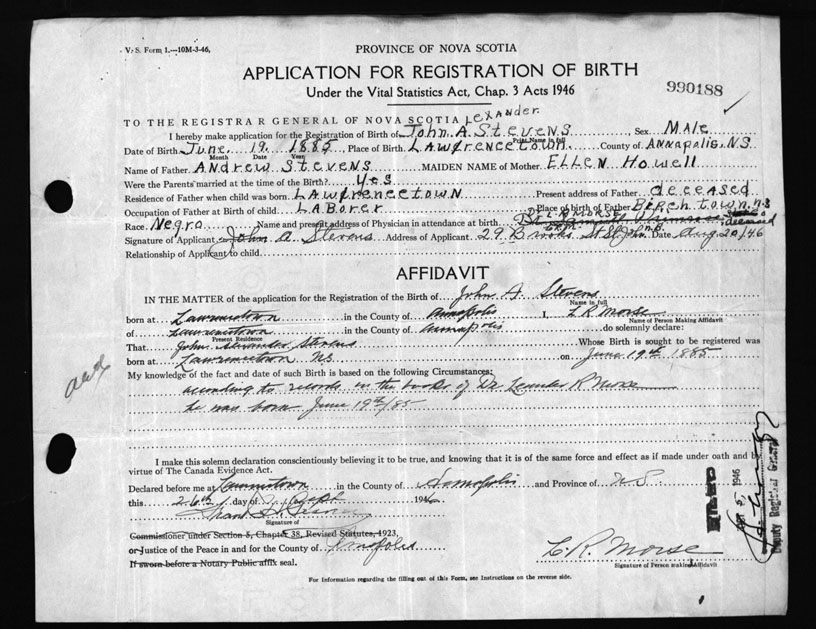 V. S. Form 1.—10M-3-46.
PROVINCE OF NOVA SCOTIA
APPLICATION FOR REGISTRATION OF BIRTH
Under the Vital Statistics Act, Chap. 3 Acts 1946
990188
TO THE REGISTRAR GENERAL OF NOVA SCOTIA
Lexander
I hereby make application for the Registration of Birth of John A. Stevens Sex Male
Print Name in full
Date of Birth June 19. 1885 Place of Birth Lawrencetown County of Annapolis, N.S
Month Date Year
Name of Father Andrew Stevens MAIDEN NAME of Mother Ellen Howell
Were the Parents married at the time of the Birth? Yes
Residence of Father when child was born Lawrencetown Present address of Father deceased
Occupation of Father at Birth of child LABorer Place of birth of Father Birchtown, N.S
Race Negro Name and present address of Physician in attendance at birth L.R. Morse deceased
Signature of Applicant John A. Stevens Address of Applicant 29 Brooks St St John N.B. Date Aug 20/46
Relationship of Applicant to child
AFFIDAVIT
IN THE MATTER of the application for the Registration of the Birth of John A Stevens
Name in full
born at Lawrencetown in the County of Annapolis I, L R Morse
Name of Person Making Affidavit
of Lawrencetown in the County of Annapolis do solemnly declare:
Present Residence
That John Alexander Stevens Whose Birth is sought to be registered was
born at Lawrencetown NS on June 19th 1885
My knowledge of the fact and date of such Birth is based on the following Circumstances:
according to records in the book of Dr. Leander R Morse
he was born June 19th/85
I make this solemn declaration conscientiously believing it to be true, and knowing that it is of the same force and effect as if made under oath and by
virtue of The Canada Evidence Act.
Declared before me at Lawrencetown in the County of Annapolis and Province of N.S.
this 26th day of Sept 1946
Signature of
Commissioner under Section 5, Chapter 38, Revised Statutes, 1923,
or Justice of the Peace in and for the County of Annapolis
If sworn before a Notary Public affix seal.
L. R. Morse
Signature of Person making Affidavit
For Information regarding the filling out of this Form, see Instructions on the reverse side.
1946
Deputy Registrar General